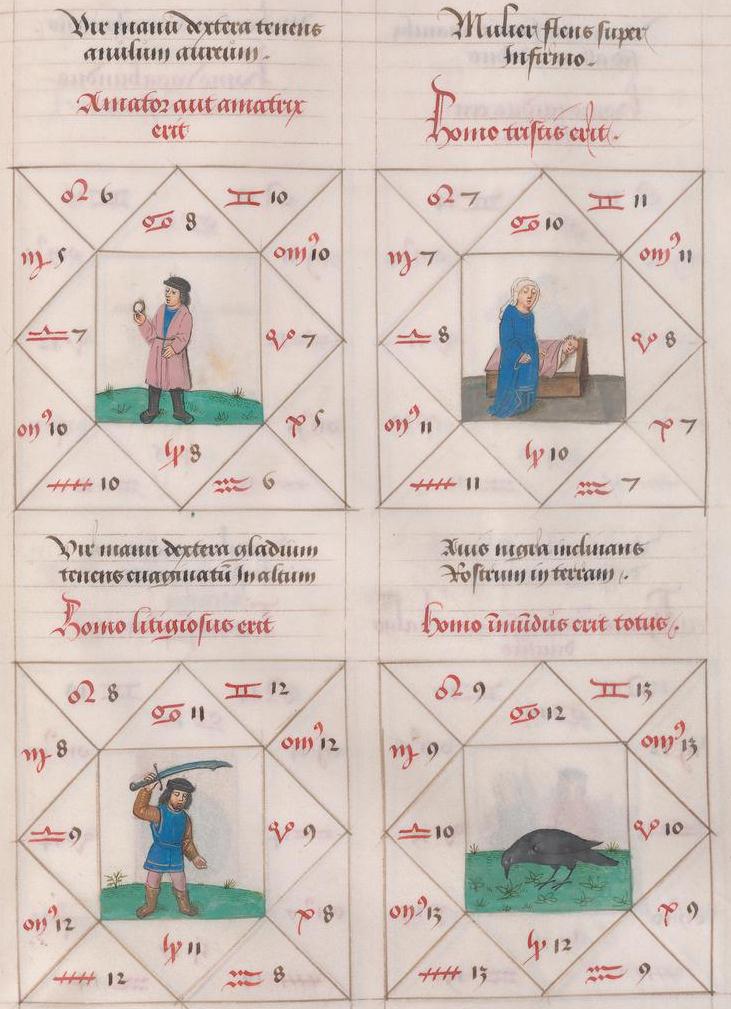 Vir manu dextera tenens
anulum aureum.
Amator aut amatrix
erit
♌ 6
♋ 8
♊ 10
♍ 5
10
♎ 7
♈ 7
10
5
♑ 8
10
♒ 6
Mulier flens super
Infirmo.
Homo tristis erit.
♌ 7
♋ 10
♊ 11
♍ 7
11
♎ 8
♈ 8
11
7
♑ 10
11
♒ 7
Vir manu dextera gladium
tenens euaginatū In altum
Homo litigiosus erit
♌ 8
♋ 11
♊ 12
♍ 8
12
♎ 9
♈ 9
12
8
♑ 11
12
♒ 8
Auis nigra inclinans
Rostrum in terram.
Homo īmūdus erit totus.
♌ 9
♋ 12
♊ 13
♍ 9
13
♎ 10
♈ 10
13
9
♑ 12
13
♒ 9